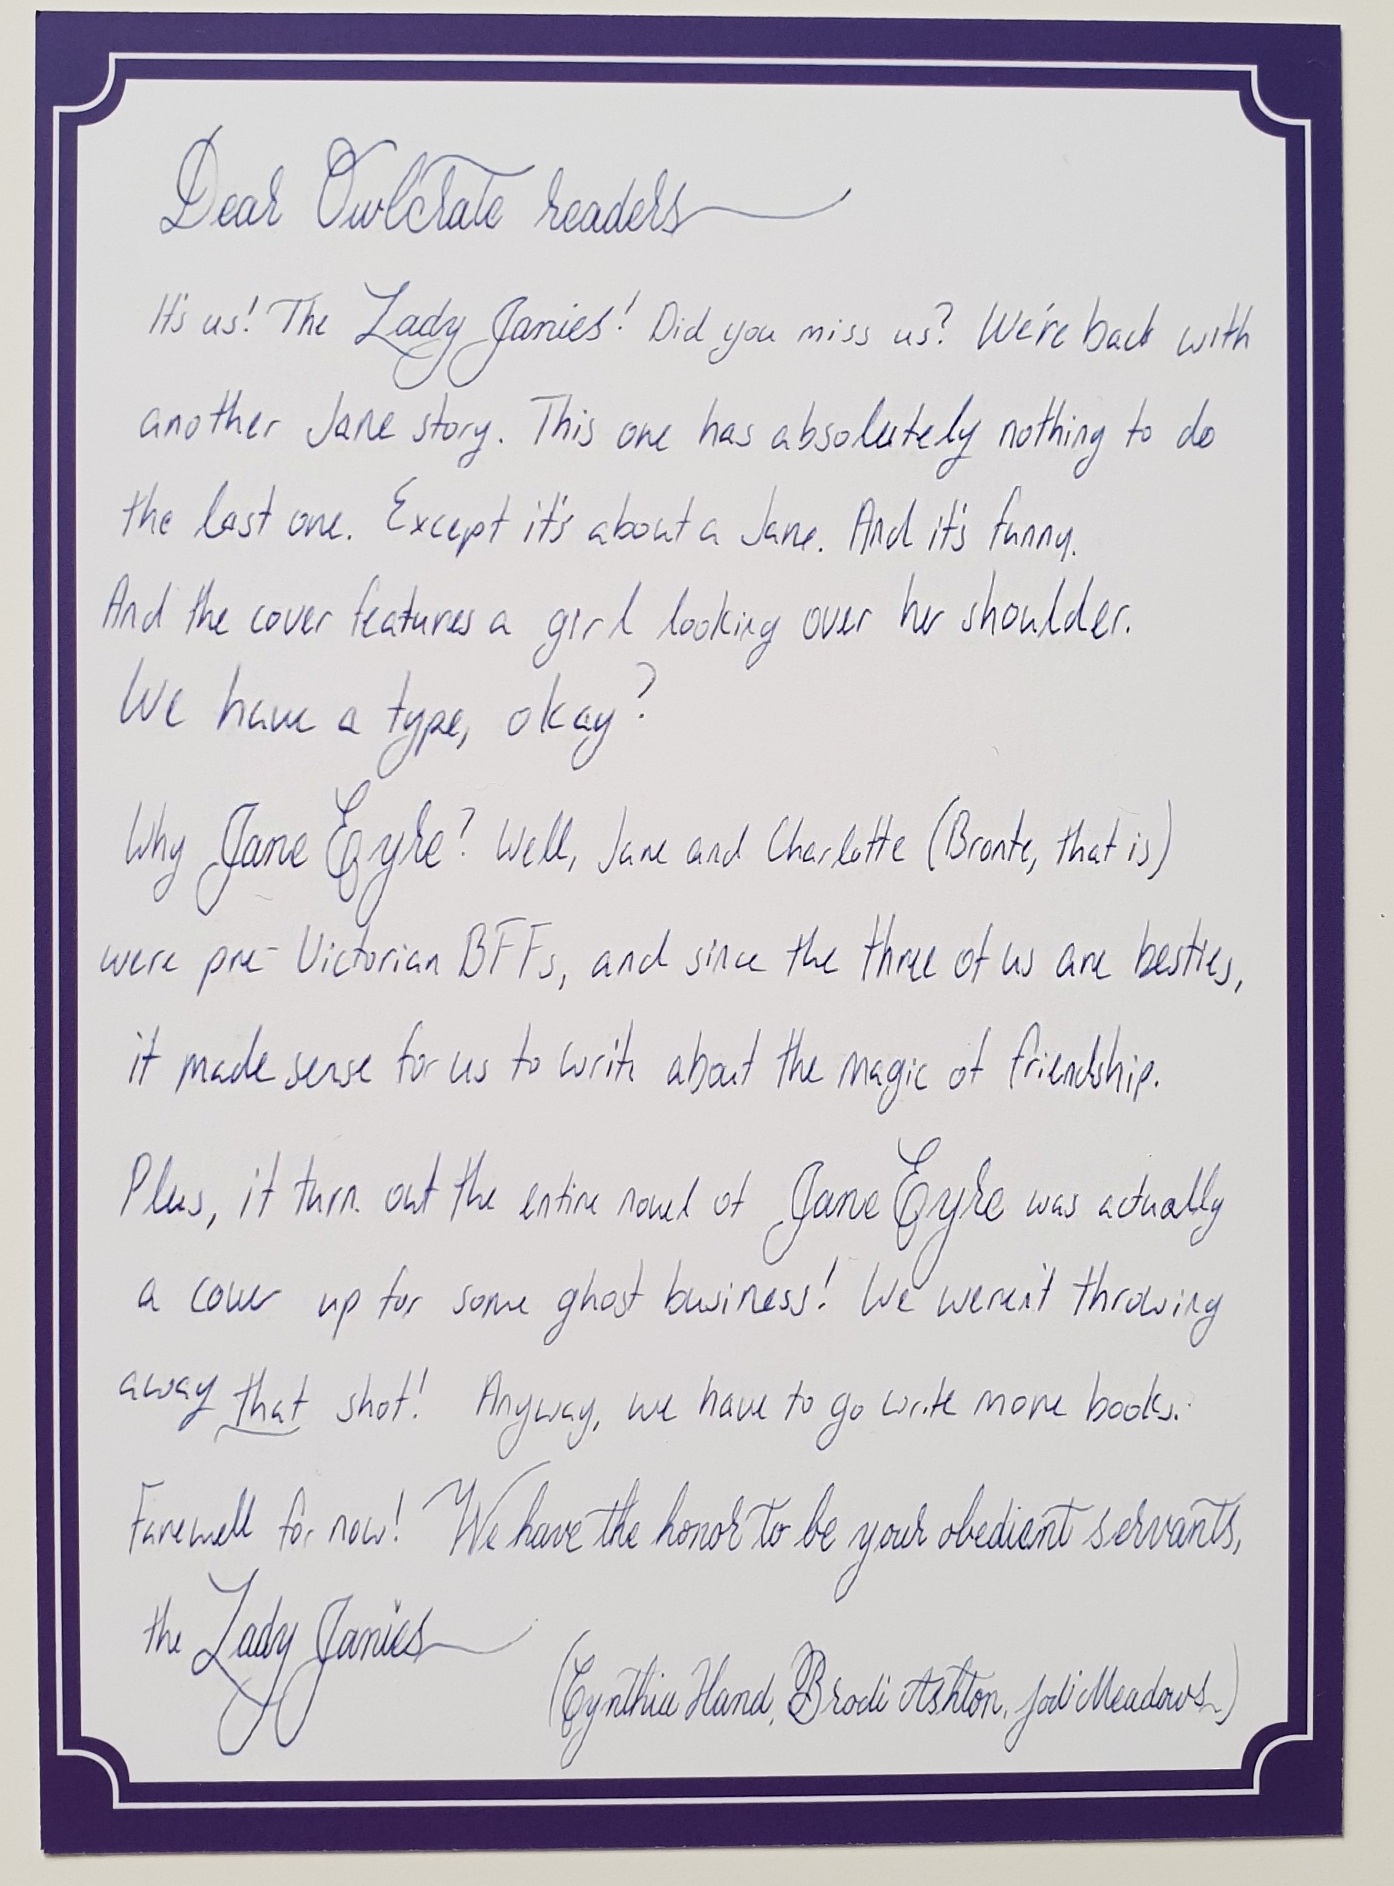 Dear Owlcrate readers
It's us! The Lady Janies! Did you miss us? We're back with
another Jane story. This one has absolutely nothing to do
the last one. Except it's about a Jane. And it's funny.
And the cover features a girl looking over her shoulder.
We have a type, okay?
Why Jane Eyre? Well, Jane and Charlotte (Bronte, that is)
were pre-Victorian BFFs, and since the three of us are besties,
it made sense for us to write about the magic of friendship.
Plus, it turn out the entire novel of Jane Eyre was actually
a cover up for some ghost business! We weren't throwing
away that shot! Anyway, we have to go write more books.
Farewell for now! We have the honor to be your obedient servants,
the Lady Janies
(Cynthia Hand, Brodi Ashton, Jodi Meadows)